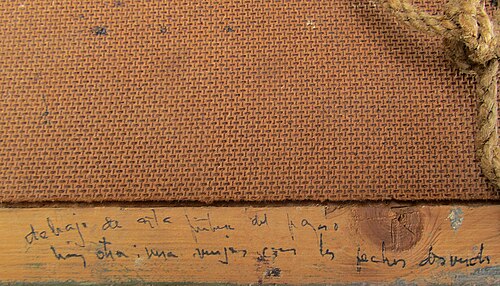 debajo de esta pintura del
hay otra: una mujer con los pechos desnudos